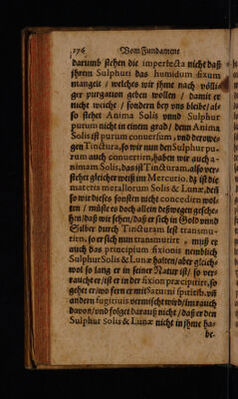 176 Vom Fundament
darumb stehen die imperfecta nicht daß
ihrem Sulphuri das humidum fixum
mangelt / welches wir ihme nach völli-
ger purgation geben wollen / damit er
nicht weiche / sondern bey uns bleibe / al-
so stehet Anima Solis vnnd Sulphur
purum nicht in einem grad / denn Anima
Solis ist purum conuersum, vnd derowe-
gen Tinctura, so wir nun den Sulphur pu-
rum auch conuertirn, haben wir auch a-
nimam Solis, das ist Tincturam, also ver-
stehet gleicher weiß im Mercurio, dz ist die
materia metallorum Solis & Lunæ, deñ
so wir dieses sonsten nicht concediren wol-
ten / müste es doch allein deßwegen gesche-
hn / daß wir sehen / daß er sich in Gold vnnd
Silber durch Tincturam lest transmu-
tirn, so er sich nun transmutirt / muß er
auch das principium fixionis nemblich
Sulphur Solis & Lunæ halten / aber gleich-
wol so lang er in seiner Natur ist / so ver-
raucht er / ist er in der fixion præcipitirt, so
gehet er / wo fern er mit Saturni spiritib. vñ
andern fugitiuis vermischt wird / im rauch
davon / vnd folget darauß nicht / daß er den
Sulphur Solis & Lunæ nicht in ihme ha-
be.